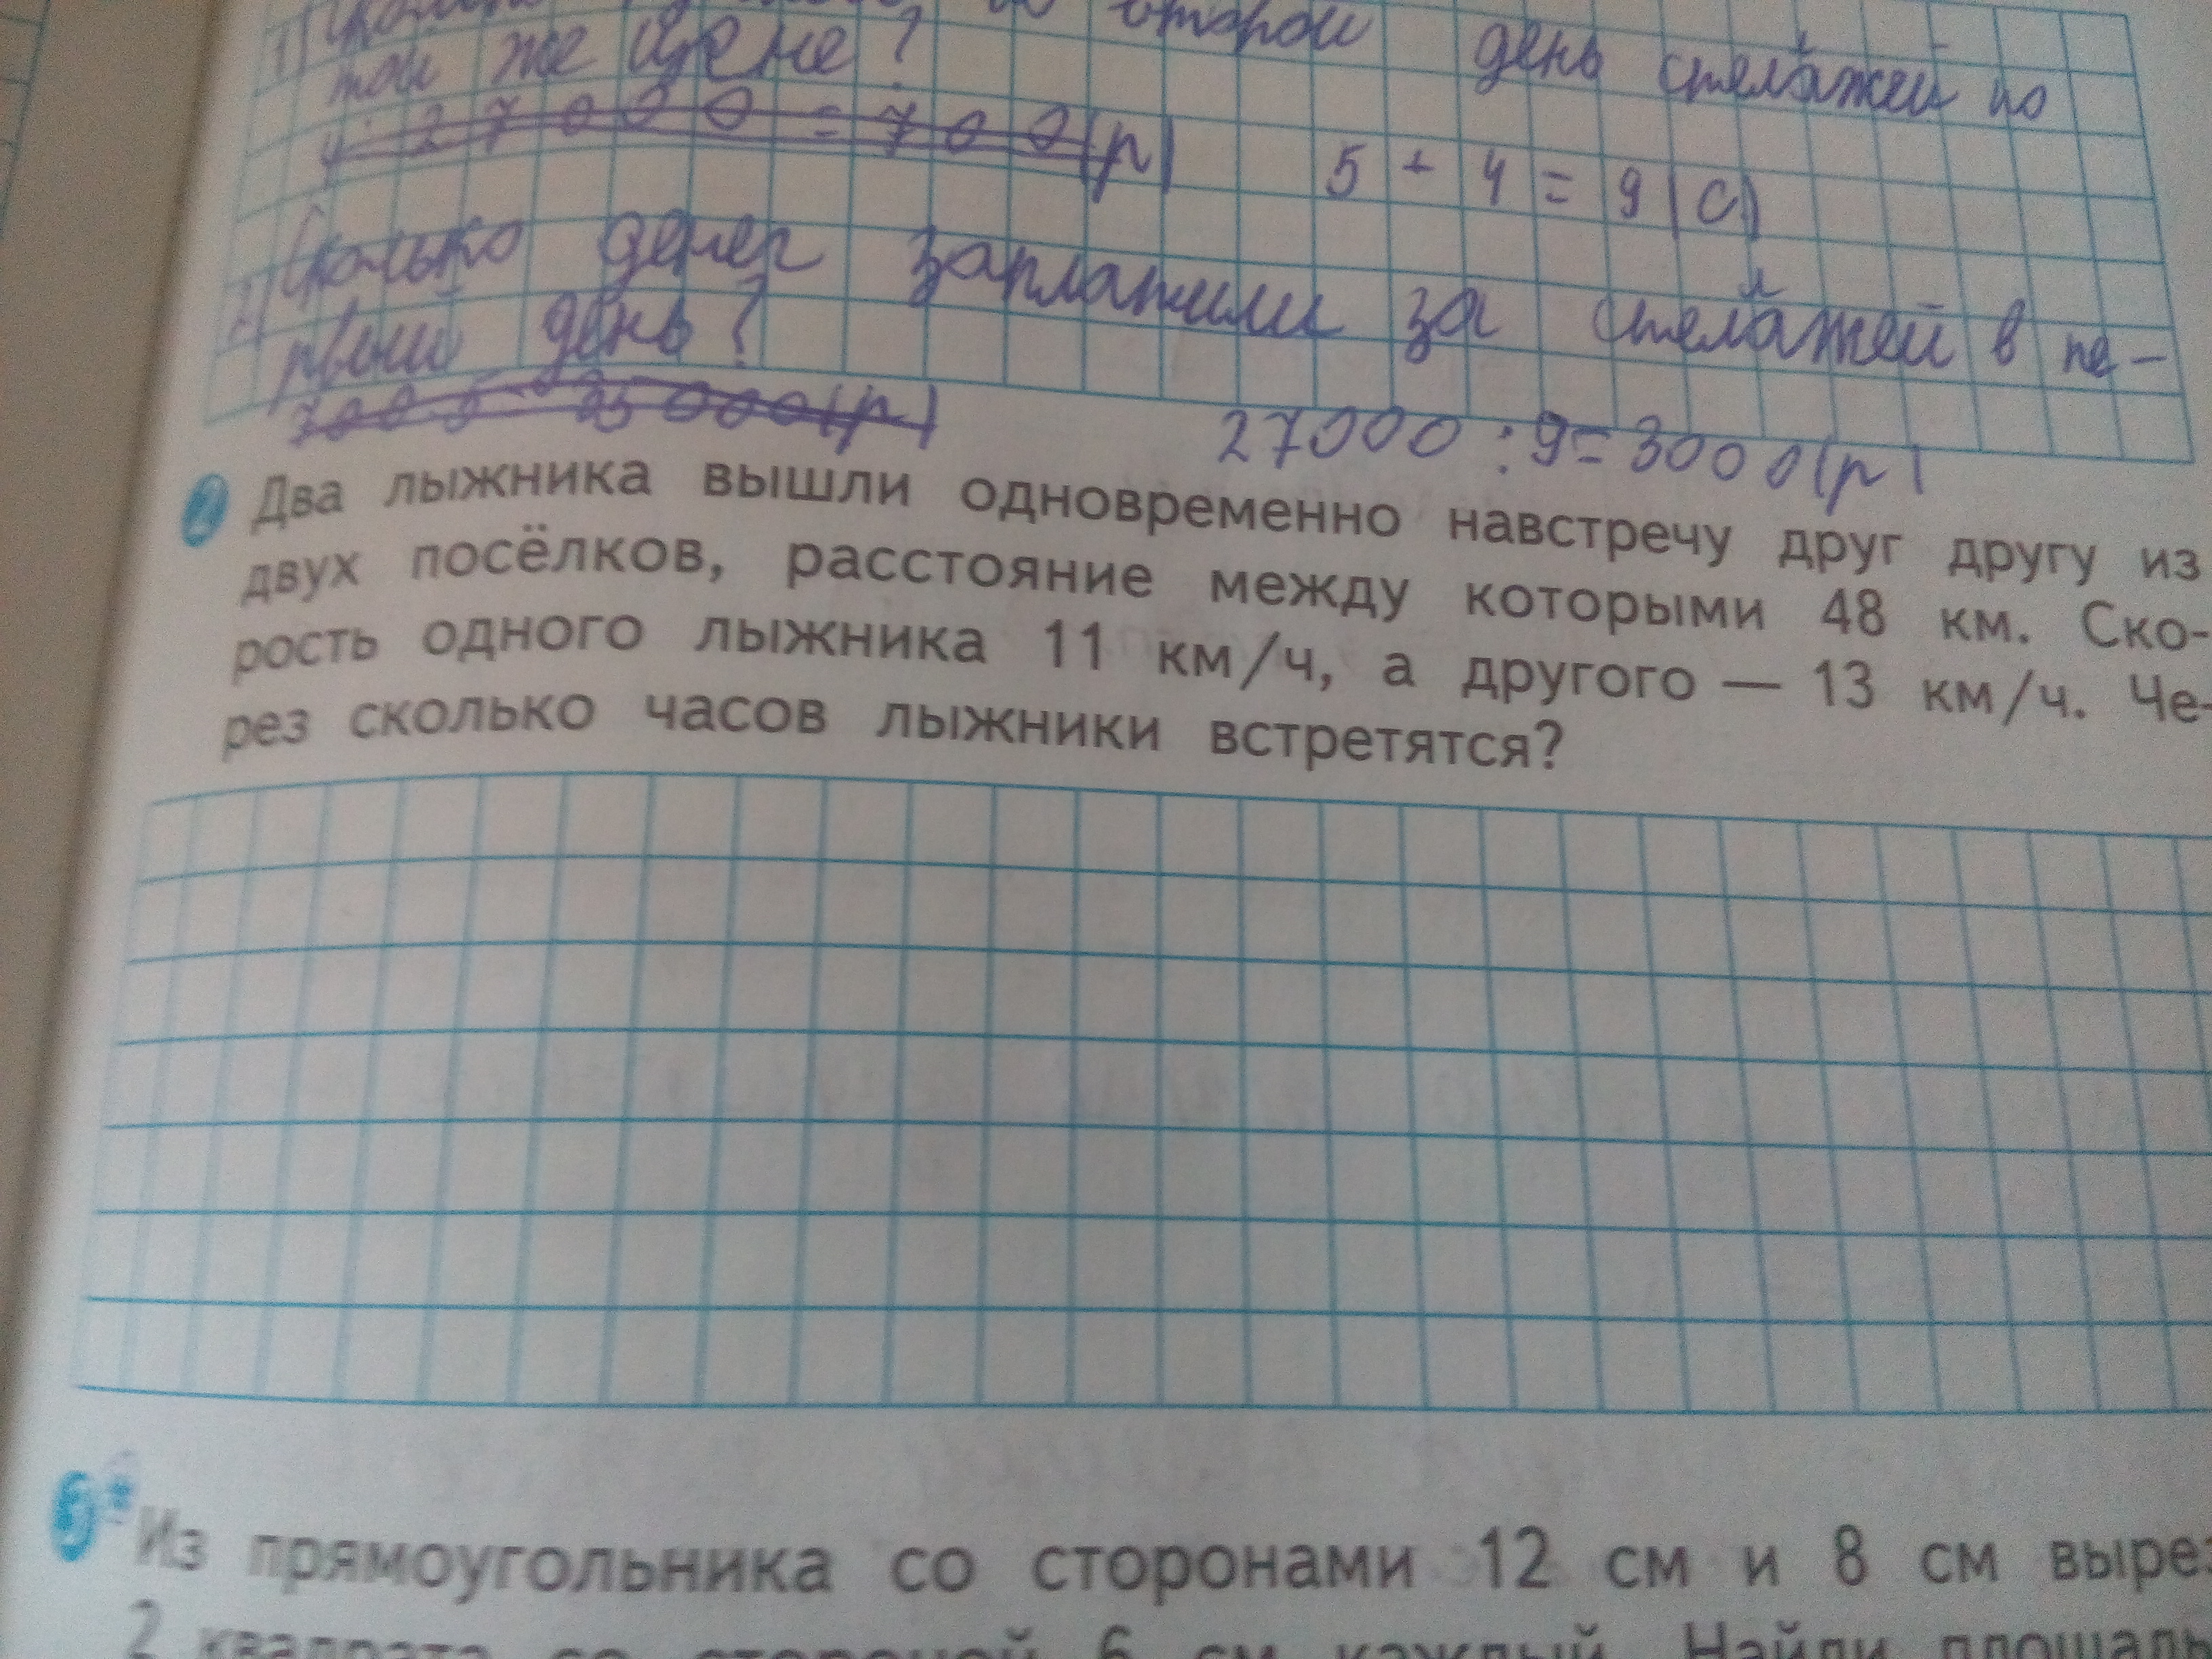 1) Сколько во второй день стелажей по
той же цене?
4: 27000 = 700(р) 5 + 4 = 9 (С)
2) Сколько денег заплатили за стеллажей в пе-
рвый день?
27000 : 9 = 3000(р)
2 Два лыжника вышли одновременно навстречу друг другу из
двух посёлков, расстояние между которыми 48 км. Ско-
рость одного лыжника 11 км/ч, а другого — 13 км/ч. Че-
рез сколько часов лыжники встретятся?
Из прямоугольника со сторонами 12 см и 8 см выре
2 квадрата со стороной 6 см каждый. Найди площадь